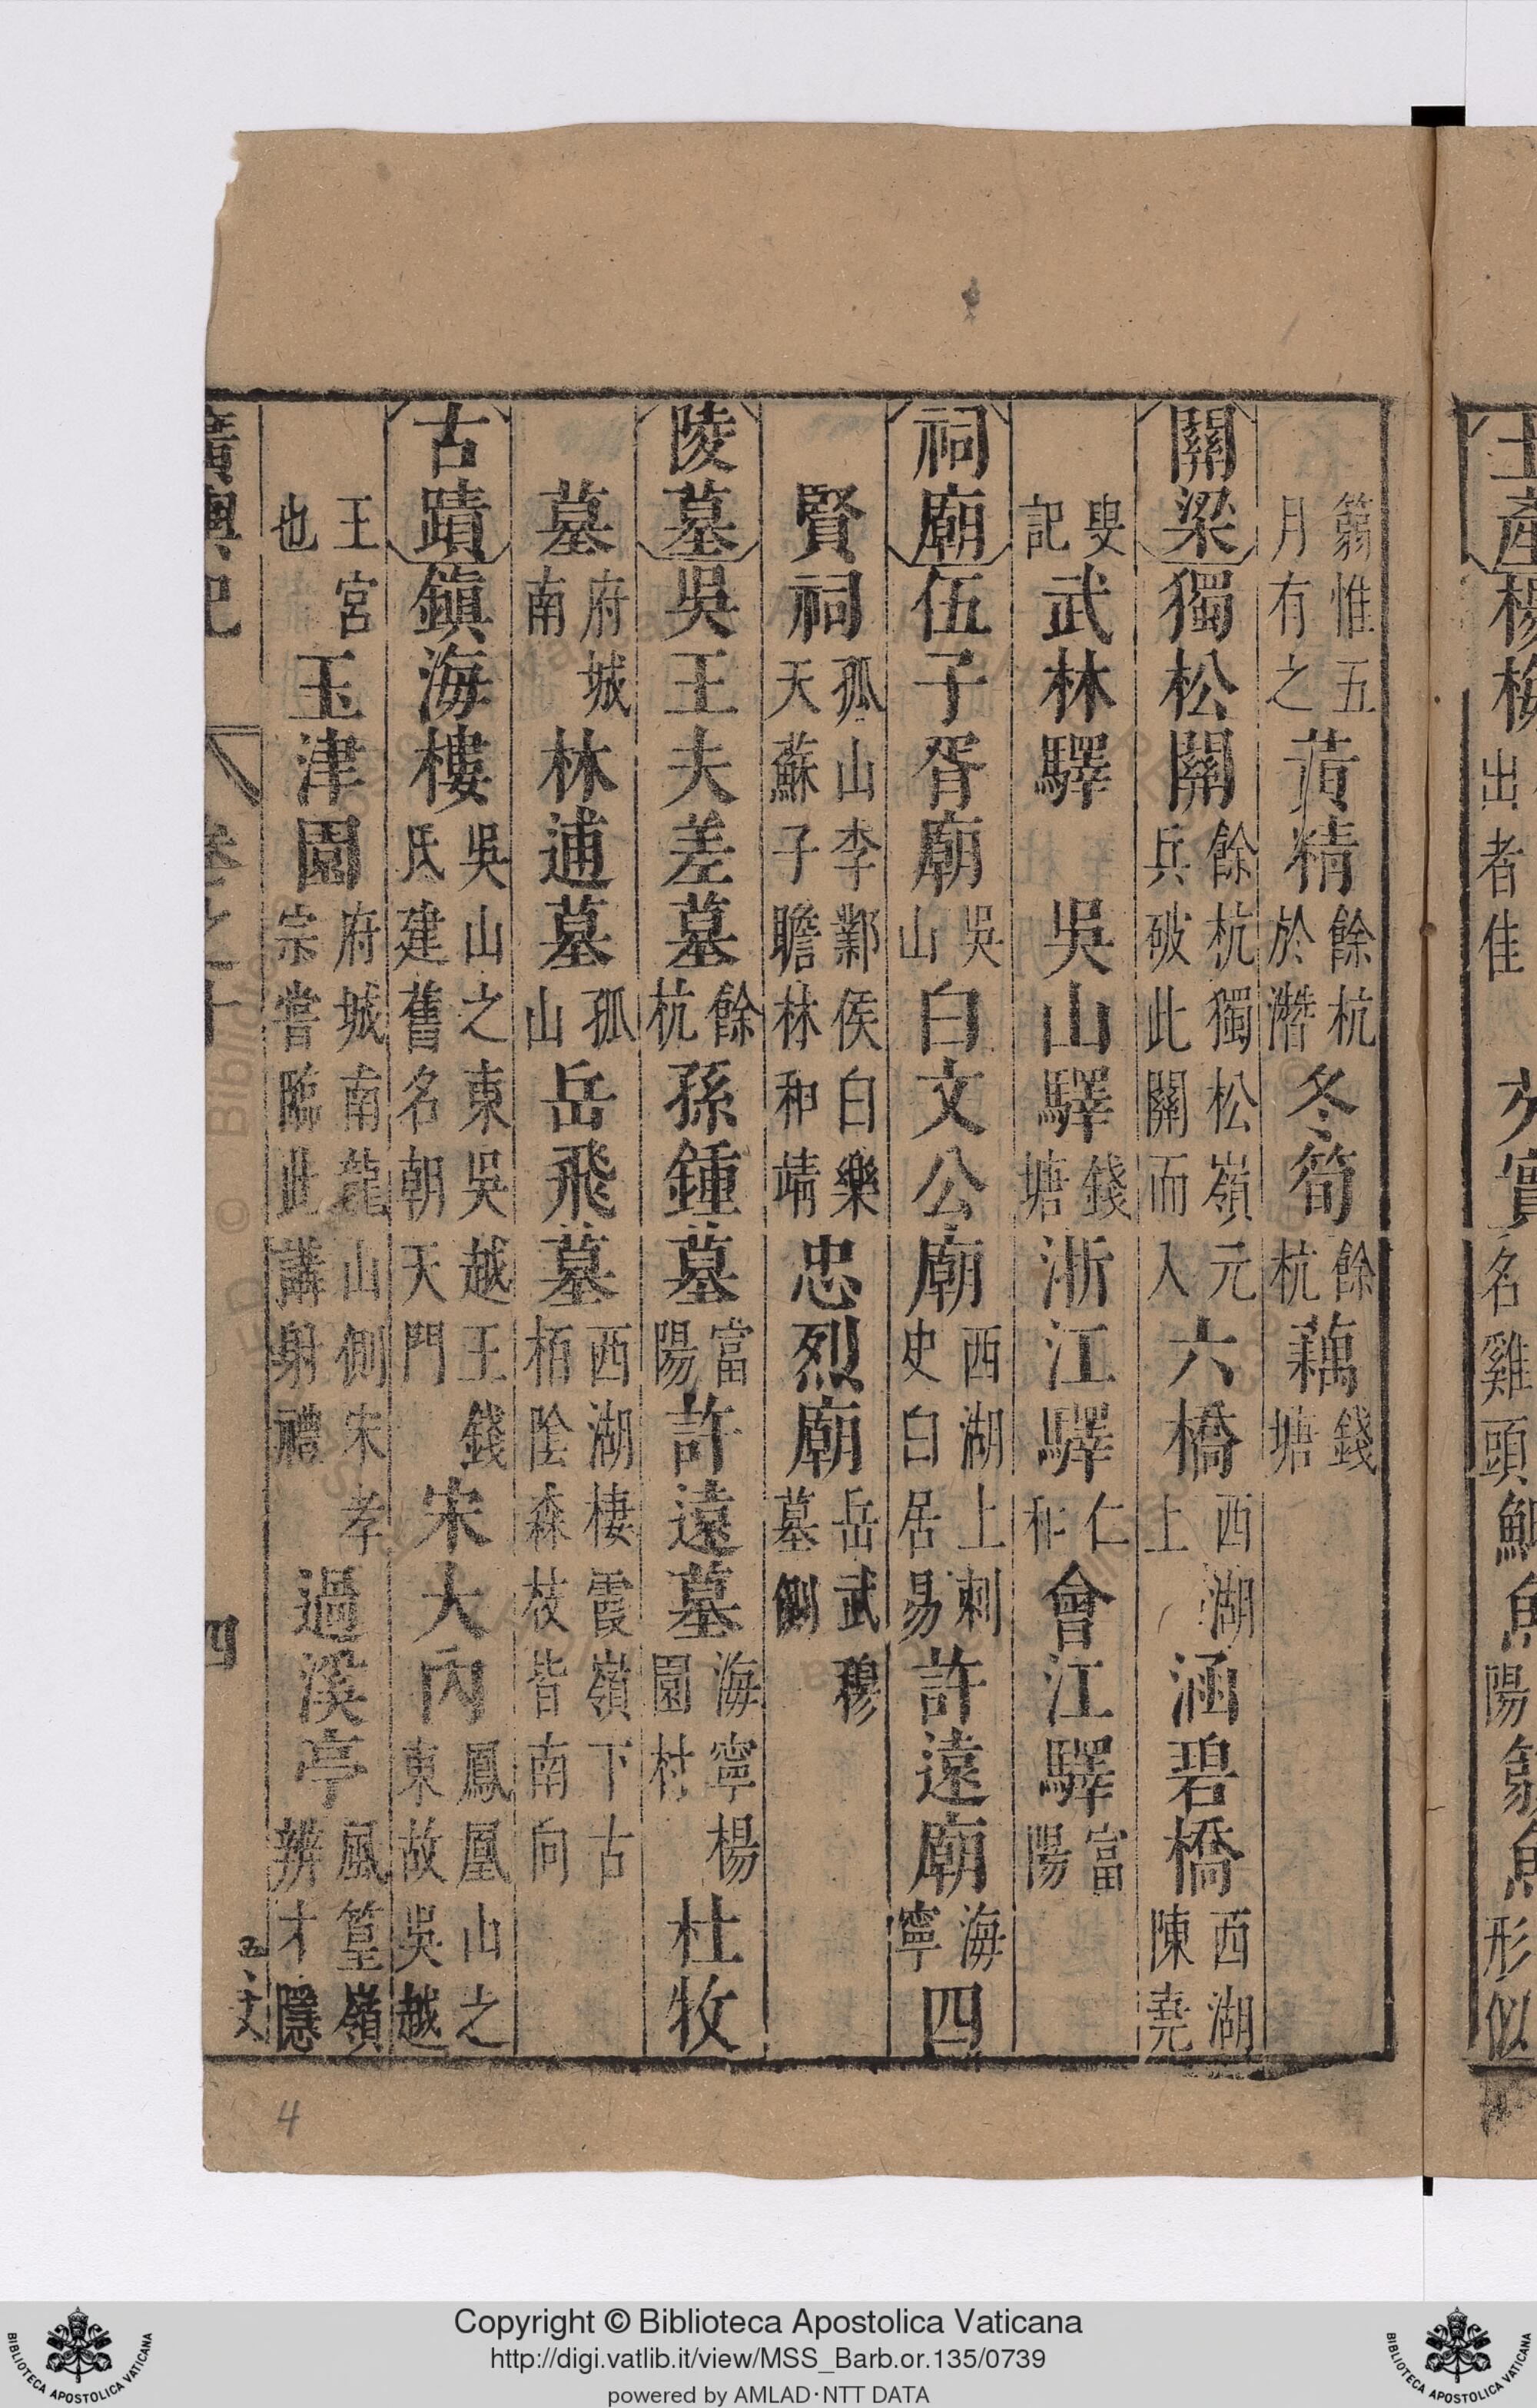 土產楊梅出者佳
名雞頭
形似
篛惟五月有之黃精餘杭於潛冬筍餘杭藕錢塘
關梁獨松關餘杭獨松嶺元兵破此關而入六橋西湖上涵碧橋西湖陳堯
叟記武林驛吳山驛錢塘浙江驛仁和會江驛富陽
祠廟伍子胥廟吳山白文公廟西湖上刺史白居易許遠廟海寧四
賢祠孤山李鄴侯白樂天蘇子瞻林和靖忠烈廟岳武穆墓側
陵墓吳王夫差墓餘杭孫鍾墓富陽許遠墓海寧楊園村杜牧
墓府城南林逋墓孤山岳飛墓西湖棲霞嶺下古栢陰森枝皆南向
古蹟鎮海樓吳山之東吳越王錢氏建舊名朝天門宋大內鳳凰山之東故吳越
王宮也玉津園府城南龍山側宋孝宗嘗臨此講射禮過溪亭風篁嶺辨才隱
廣輿記 卷之十 四
4
Copyright © Biblioteca Apostolica Vaticana
http://digi.vatlib.it/view/MSS_Barb.or.135/0739
powered by AMLAD·NTT DATA
BIBLIOTECA APOSTOLICA VATICANA
BIBLIOTECA APOSTOLICA VATICANA